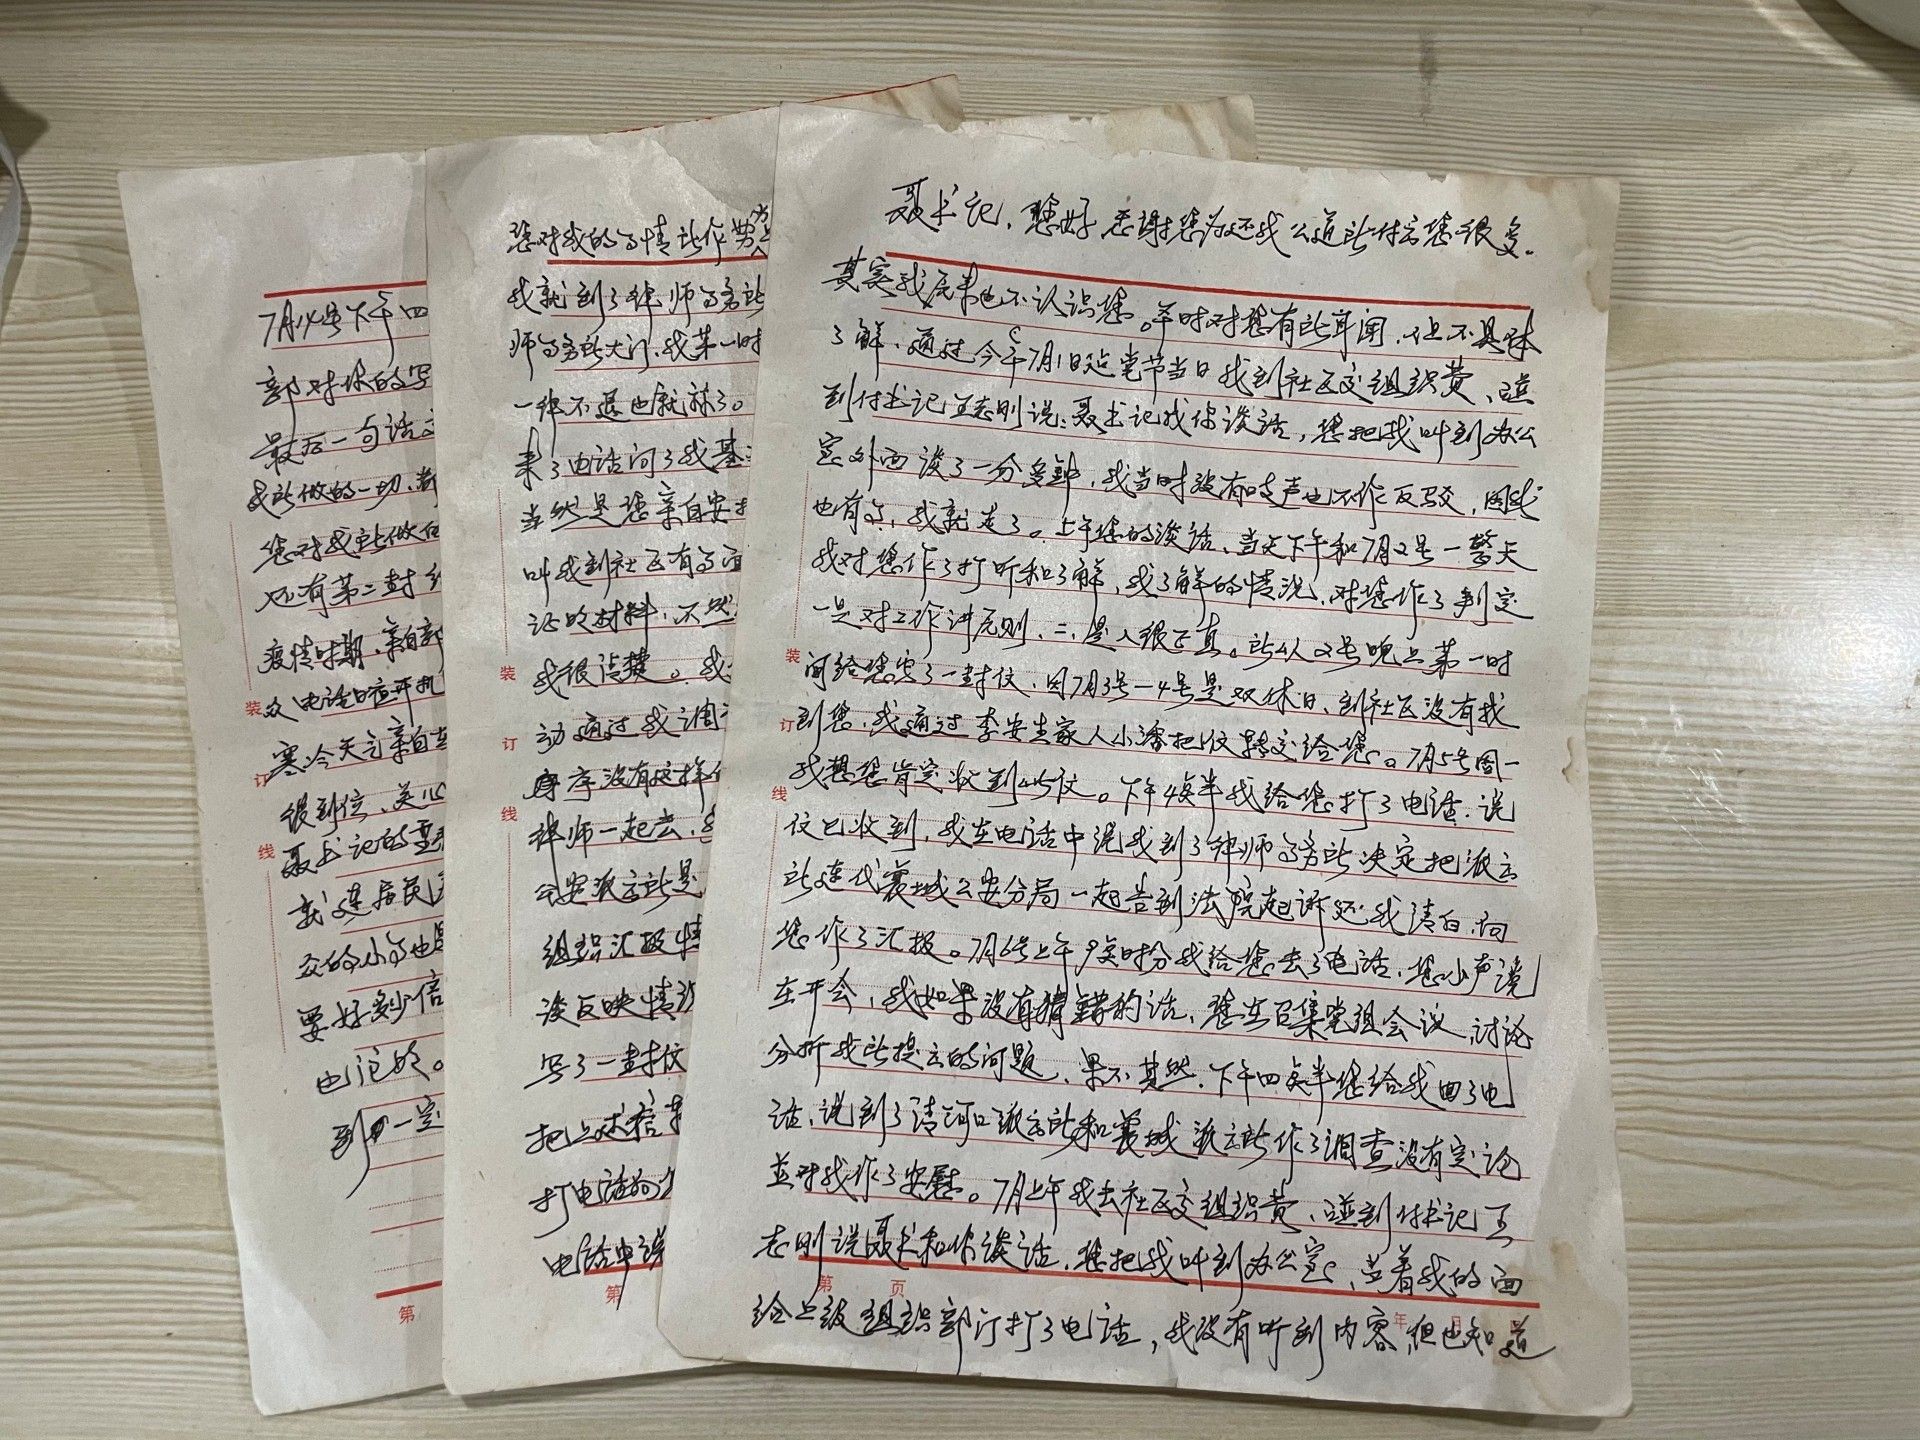 聂书记，您好，感谢您为还我公道所付出您很多。
其实我原来也不认识您。平时对您有所耳闻，但不具体
了解，通过今年7月1日是党节当日我到社区交组织费，碰
到付书记王志刚说：聂书记找你谈话，您把我叫到办公
室外面谈了一分多钟，我当时没有吱声也不作反驳，因我
也有事，我就走了。上午您的谈话，当天下午和7月2号一整天
我对您作了打听和了解，我了解的情况，对您作了判定
一是对工作讲原则，二是人很正直。所以2号晚上第一时
间给您写了一封信，因7月3号—4号是双休日，到社区没有找
到您，我通过李安生家人小潘把信转交给您。7月5号周一
我想您肯定收到此信。下午4点半我给您打了电话，说
信已收到，我在电话中说我到了律师事务所决定把派出
所连代襄城公安分局一起告到法院起诉还我清白，向
您作了汇报。7月6号上午9点时分我给您去了电话，您小声说
在开会，我如果没有猜错的话，您在召集党组会议，讨论
分析我所提出的问题，果不其然，下午四点半您给我回了电
话，说到了清河口派出所和襄城派出所作了调查没有定论
并对我作了安慰。7月上午我去社区交组织费，碰到付书记王
志刚说聂书和你谈话，您把我叫到办公室，当着我的面
给上级组织部门打了电话，我没有听到内容，但也知道
第 页 年 月 日
您对我的事情所作努力
我就到了律师事务所
师事务所大门，我第一时
一律不退也就算了。
来了电话问了我基
当然是您亲自安
叫我到社区有事
证的材料，不然
我很佩赞。我
动通过我调
身序没有这样
律师一起去，
公安派出所是
组织汇报情
谈反映情况
写了一封信
把上述
打电话
电话中说
装
订
线
第
7月14号下午四
部对你的写
最后一句话
我所做的一切，
您对我所做
还有第二封
疫情时期，亲自部
众电话日夜开机
寒冷天亲自
很到位，关心
聂书记的
就连居民
众的小事也
要好多倍
也
到一定
装
订
线
第